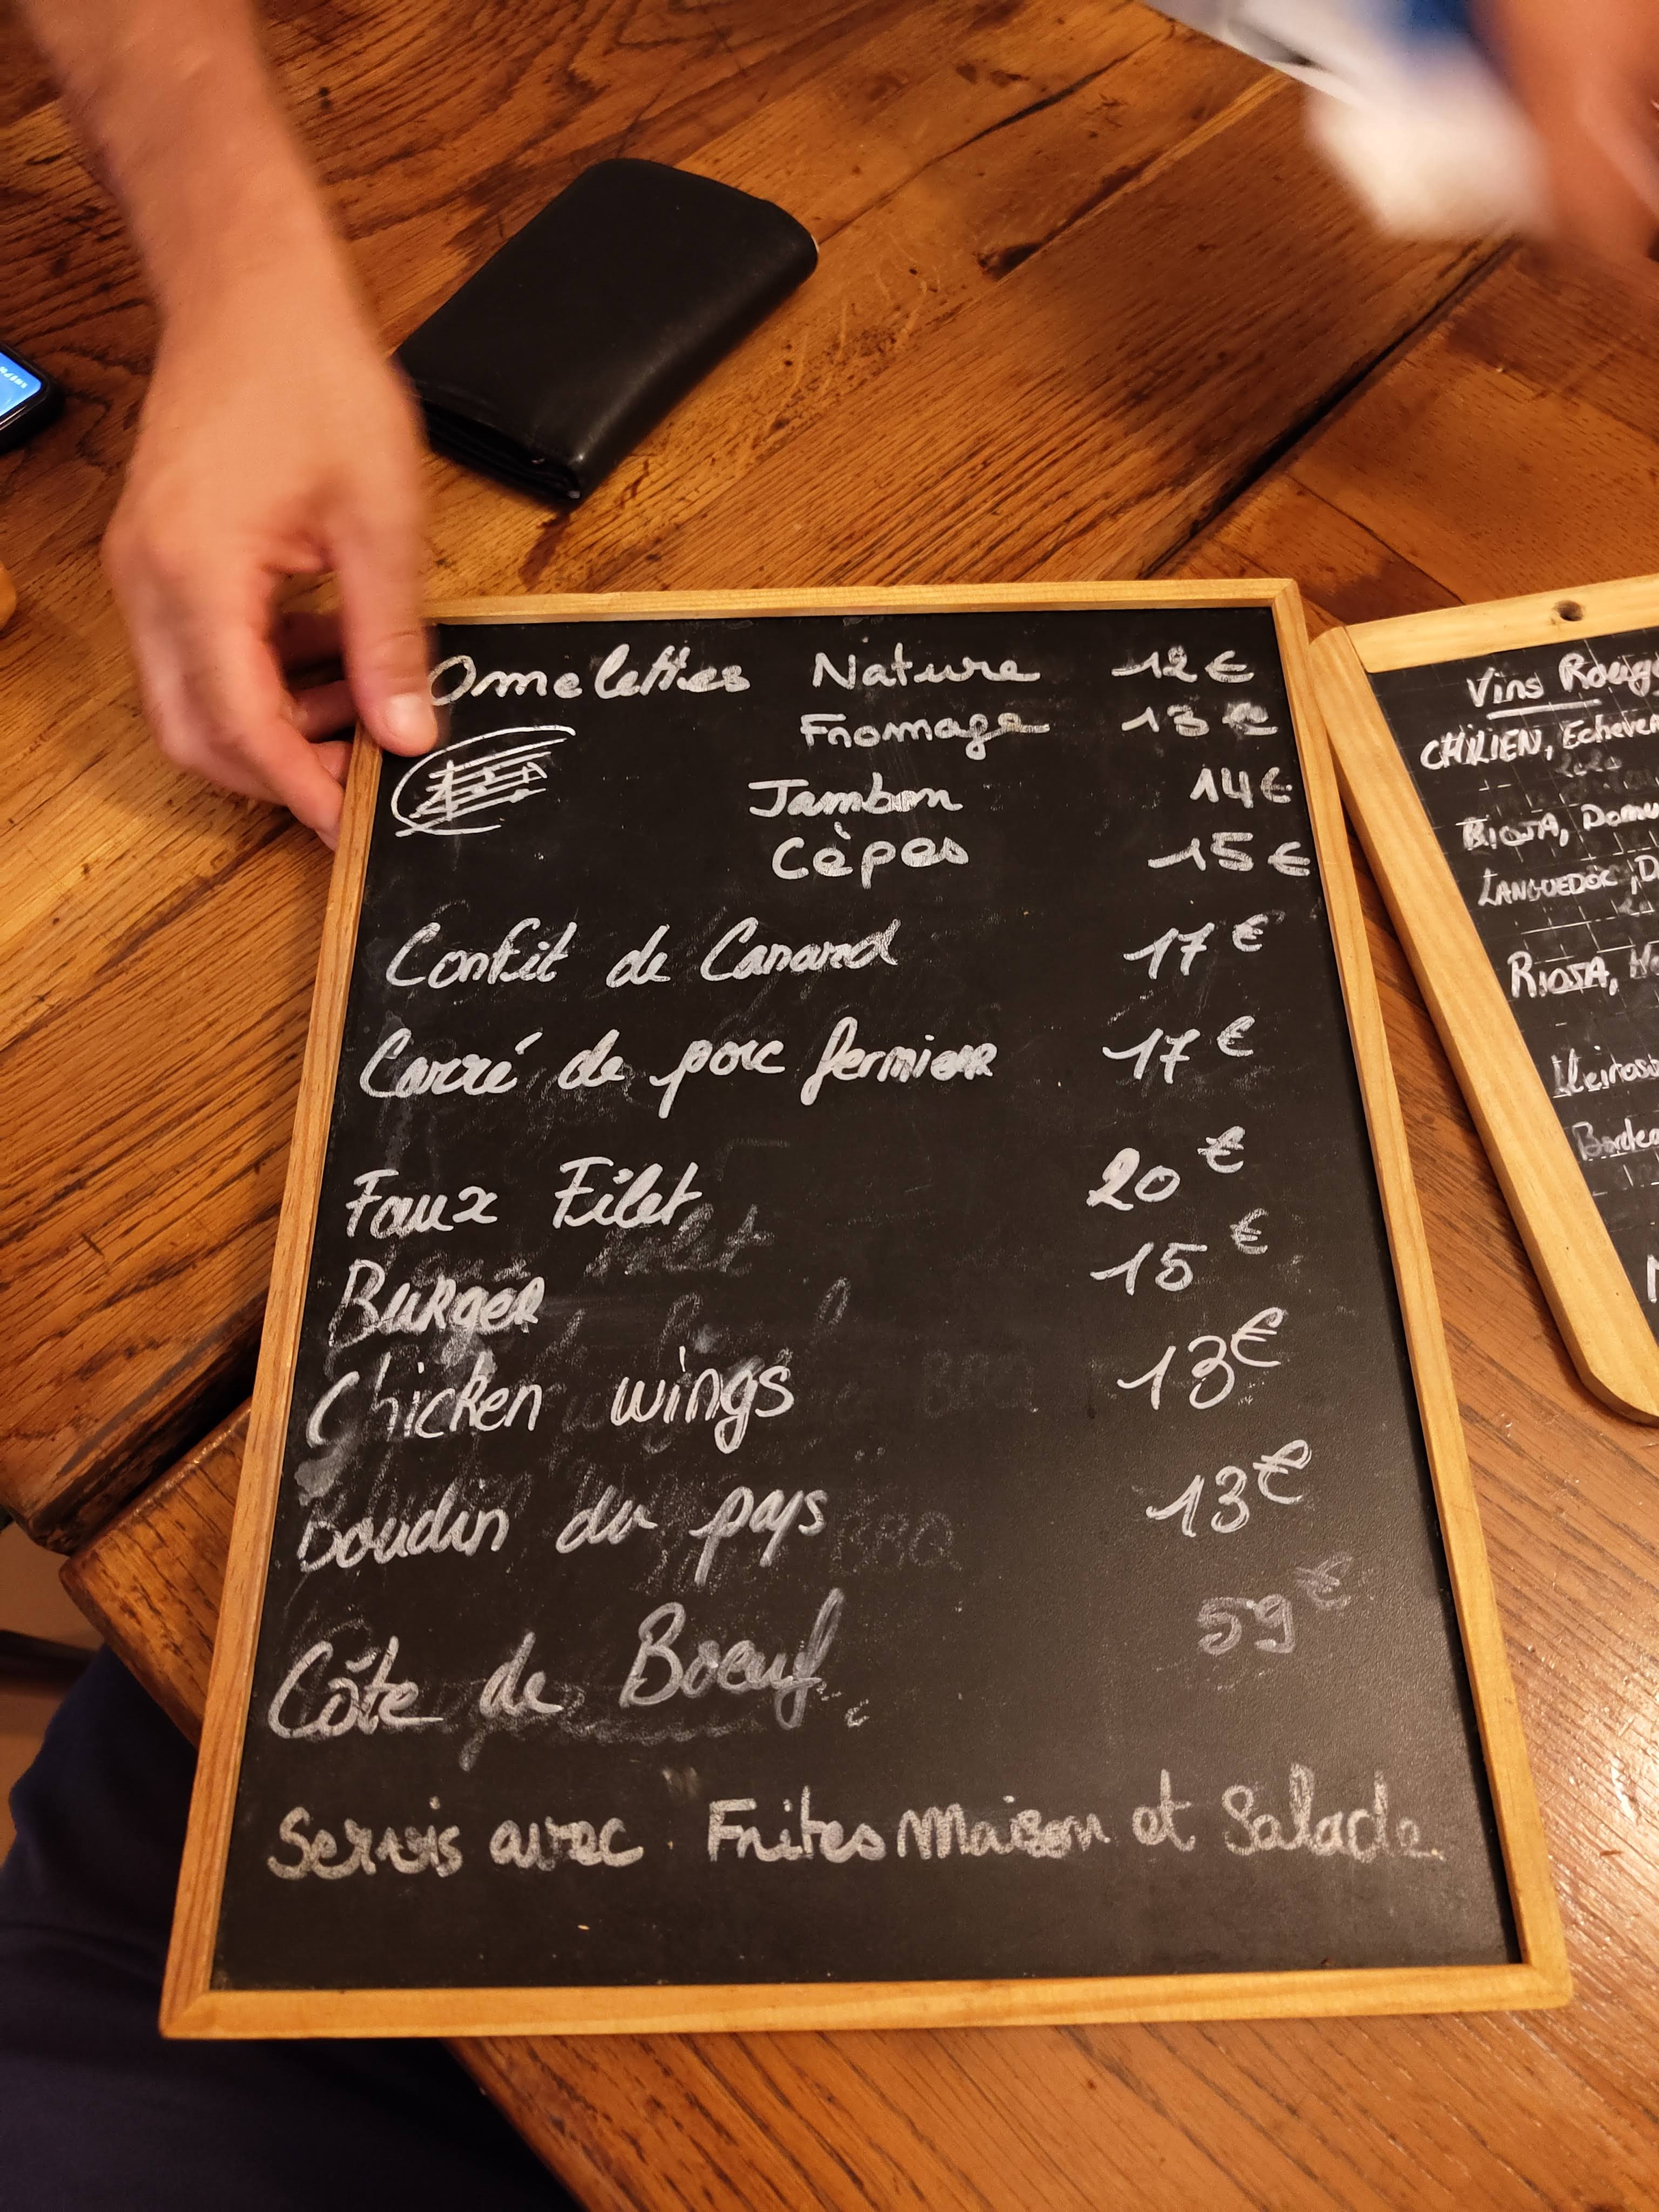 Omelettes Nature 12€
Fromage 13€
Jambon 14€
Cèpes 15€
Confit de Canard 17€
Carré de porc fermier 17€
Faux Filet 20€
Burger 15€
Chicken wings 13€
Boudin du pays 13€
Côte de Boeuf 59€
Servis avec Frites Maison et Salade
Vins Rouge
CHILIEN, Echever
RIOJA, Domu
LANGUEDOC, D
RIOJA,